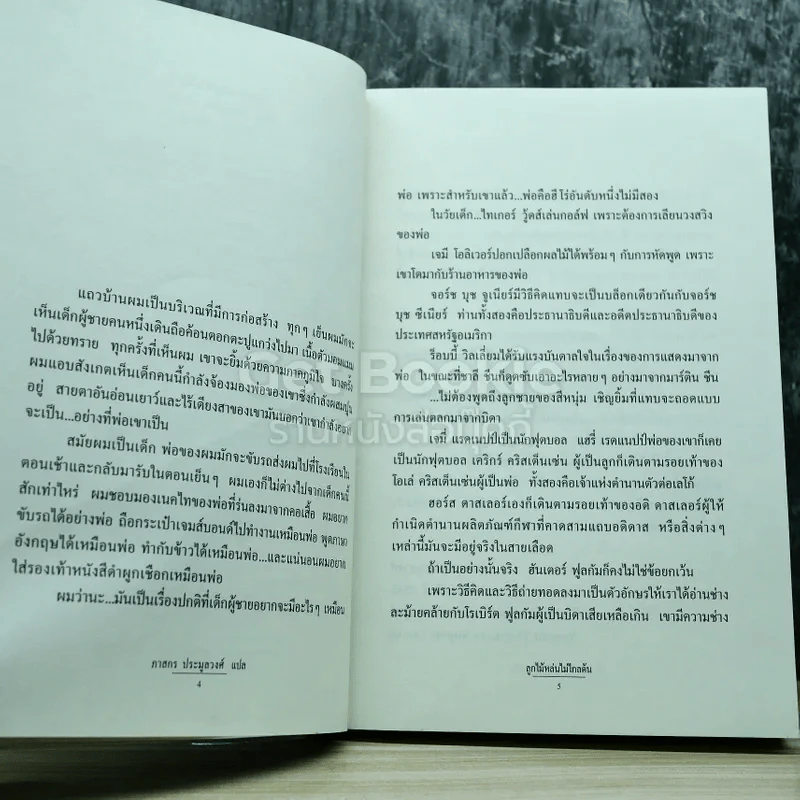 แถวบ้านผมเป็นบริเวณที่มีการก่อสร้าง ทุกๆ เย็นผมมักจะ
เห็นเด็กผู้ชายคนหนึ่งเดินถือค้อนตอกตะปูแกว่งไปมา เนื้อตัวมอมแมม
ไปด้วยทราย ทุกครั้งที่เห็นผม เขาจะยิ้มด้วยความภาคภูมิใจ บางครั้ง
ผมแอบสังเกตเห็นเด็กคนนี้กำลังจ้องมองพ่อของเขาซึ่งกำลังผสมปูน
อยู่ สายตาอันอ่อนเยาว์และไร้เดียงสาของเขามันบอกว่าเขากำลังอยาก
จะเป็น...อย่างที่พ่อเขาเป็น
สมัยผมเป็นเด็ก พ่อของผมมักจะขับรถส่งผมไปที่โรงเรียนใน
ตอนเช้าและกลับมารับในตอนเย็นๆ ผมเองก็ไม่ต่างไปจากเด็กคนนี้
สักเท่าไหร่ ผมชอบมองเนคไทของพ่อที่ร่นลงมาจากคอเสื้อ ผมอยาก
ขับรถได้อย่างพ่อ ถือกระเป๋าเจมส์บอนด์ไปทำงานเหมือนพ่อ พูดภาษา
อังกฤษได้เหมือนพ่อ ทำกับข้าวได้เหมือนพ่อ...และแน่นอนผมอยาก
ใส่รองเท้าหนังสีดำผูกเชือกเหมือนพ่อ
ผมว่านะ...มันเป็นเรื่องปกติที่เด็กผู้ชายอยากจะมีอะไรๆ เหมือน
ภาสกร ประมูลวงศ์ แปล
4
พ่อ เพราะสำหรับเขาแล้ว...พ่อคือฮีโร่อันดับหนึ่งไม่มีสอง
ในวัยเด็ก...ไทเกอร์ วู้ดส์เล่นกอล์ฟ เพราะต้องการเลียนวงสวิง
ของพ่อ
เจมี โอลิเวอร์ปอกเปลือกผลไม้ได้พร้อมๆ กับการหัดพูด เพราะ
เขาโตมากับร้านอาหารของพ่อ
จอร์ช บุช จูเนียร์มีวิธีคิดแทบจะเป็นบล็อกเดียวกันกับจอร์ช
บุช ซีเนียร์ ท่านทั้งสองคือประธานาธิบดีและอดีตประธานาธิบดีของ
ประเทศสหรัฐอเมริกา
ร็อบบี้ วิลเลี่ยมได้รับแรงบันดาลใจในเรื่องของการแสดงมาจาก
พ่อ ในขณะที่ชาลี ชีนก็ดูดซับเอาอะไรหลายๆ อย่างมาจากมาร์ติน ชีน
...ไม่ต้องพูดถึงลูกชายของสี่หนุ่ม เชิญยิ้มที่แทบจะถอดแบบ
การเล่นตลกมาจากบิดา
เจมี่ แรดเนปป์เป็นนักฟุตบอล แฮรี่ เรดแนปป์พ่อของเขาก็เคย
เป็นนักฟุตบอล เคริกร์ คริสเต็นเซ่น ผู้เป็นลูกก็เดินตามรอยเท้าของ
โอเล่ คริสเต็นเซ่นผู้เป็นพ่อ ทั้งสองคือเจ้าแห่งตำนานตัวต่อเลโก้
ฮอร์ส ดาสเลอร์เองก็เดินตามรอยเท้าของอดิ ดาสเลอร์ผู้ให้
กำเนิดตำนานผลิตภัณฑ์กีฬาที่คาดสามแถบอดิดาส หรือสิ่งต่างๆ
เหล่านี้มันจะมีอยู่จริงในสายเลือด
ถ้าเป็นอย่างนั้นจริง ฮันเตอร์ ฟูลกัมก็คงไม่ใช่ข้อยกเว้น
เพราะวิธีคิดและวิธีถ่ายทอดลงมาเป็นตัวอักษรให้เราได้อ่านช่าง
ละม้ายคล้ายกับโรเบิร์ต ฟูลกัมผู้เป็นบิดาเสียเหลือเกิน เขามีความช่าง
ลูกไม้หล่นไม่ไกลต้น
5